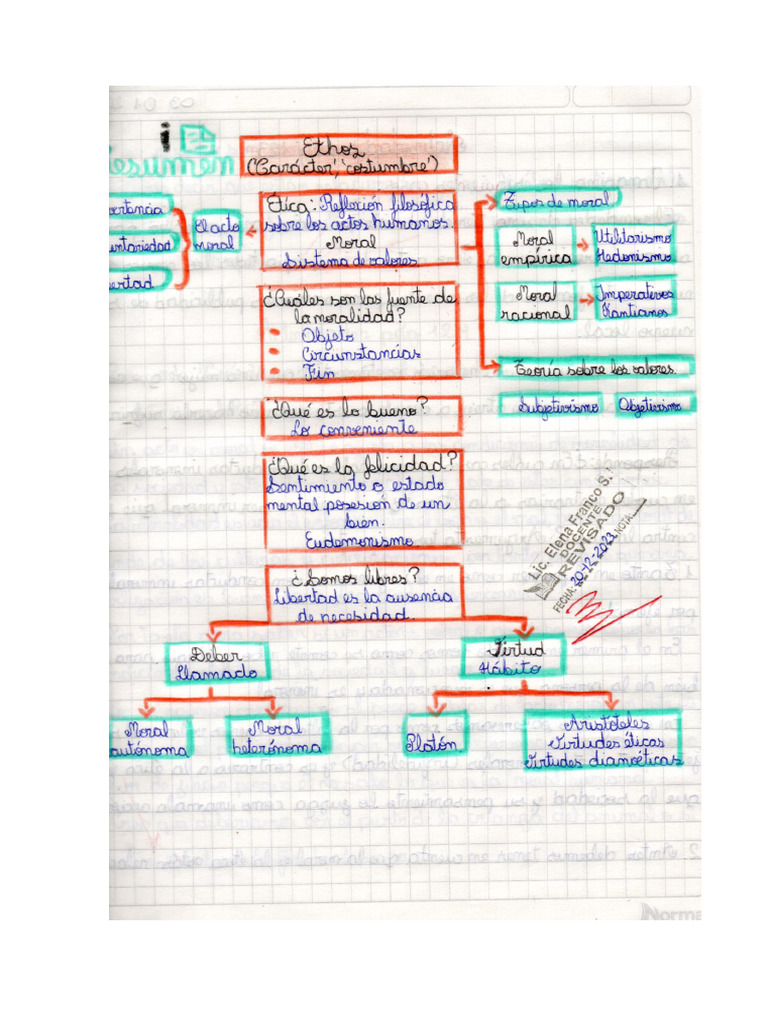 Ethos
(Carácter', 'costumbre')
Ética: Reflexión filosófica
sobre los actos humanos.
Moral
Sistema de valores
El acto
moral
Tipos de moral
Moral
empírica
Utilitarismo
Hedonismo
Moral
racional
Imperativos
Kantianos
Teoría sobre los valores.
Subjetivismo
Objetivismo
¿Cuáles son las fuente de
la moralidad?
Objeto
Circunstancias
Fin
¿Qué es lo bueno?
Lo conveniente
¿Qué es la felicidad?
Sentimiento o estado
mental posesión de un
bien.
Eudemonismo
Lic. Elena Franco S.
DOCENTE
REVISADO
FECHA: 20-12-2023 NOTA:
¿Somos libres?
Libertad es la ausencia
de necesidad.
Deber
Llamado
Virtud
Hábito
Moral
autónoma
Moral
heterónoma
Platón
Aristóteles
Virtudes éticas
Virtudes dianoéticas
Norma